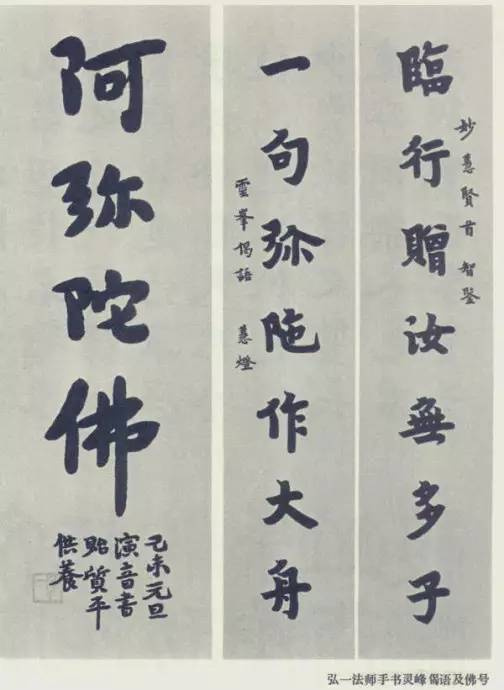 妙慧賢首智鑒
臨行贈汝無多子
一句弥陁作大舟
靈峯偈語 慧燈
阿弥陀佛
己未元旦
演音書
貽質平
供養
弘一法师手书灵峰偈语及佛号